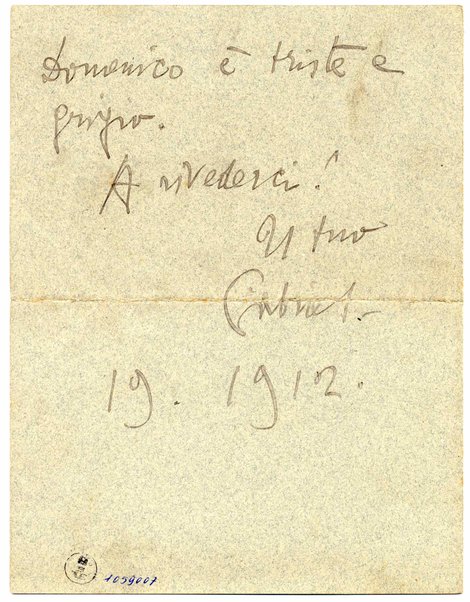 Domenico è triste e
grigio.
A rivederci!
Il tuo
Gabriel.
19. 1912.
1059007